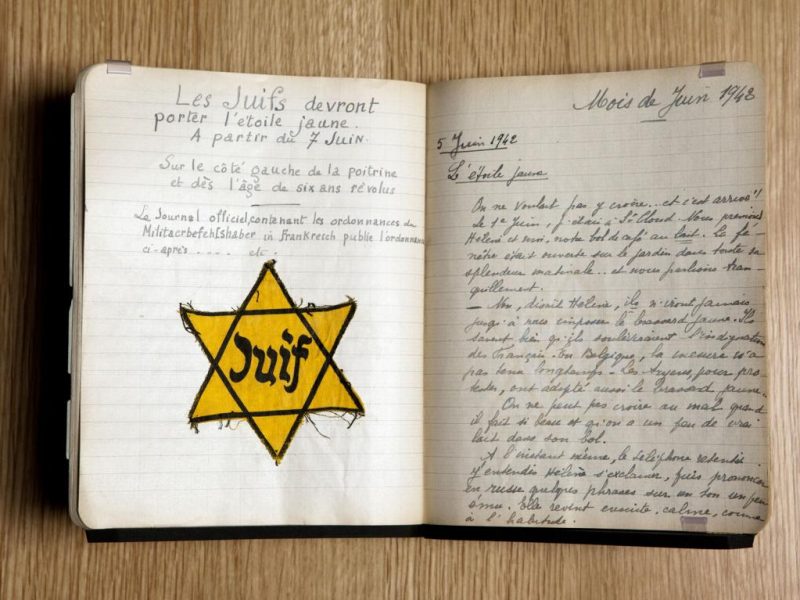 Les Juifs devront
porter l'étoile jaune.
A partir du 7 Juin.
Sur le côté gauche de la poitrine
et dès l'âge de six ans révolus
Le Journal officiel, contenant les ordonnances du
Militaerbefehlshaber in Frankreich publie l'ordonnance
ci-après . . . . . etc.
Juif
Mois de Juin 1942
5 Juin 1942
L'étoile jaune
On ne voulait pas y croire... et c'est arrivé!
Le 1er Juin, j'étais à St Cloud. Nous prenions
Hélène et moi, notre bol de café au lait. La fe-
nêtre était ouverte sur le jardin dans toute sa
splendeur matinale... et nous parlions tran-
quillement.
— Non, disait Hélène, ils n'iront jamais
jusqu'à nous imposer le brassard jaune. Ils
savent bien qu'ils soulèveraient l'indignation
des Français. En Belgique, la mesure n'a
pas tenu longtemps. Les Aryens, pour pro-
tester, ont adopté aussi le brassard jaune.
On ne peut pas croire au mal quand
il fait si beau et qu'on a un peu de vrai
lait dans son bol.
A l'instant même, le téléphone retentit.
J'entendis Hélène s'exclamer, puis prononcer
en russe quelques phrases sur un ton un peu
ému. Elle revint ensuite, calme, comme
à l'habitude.